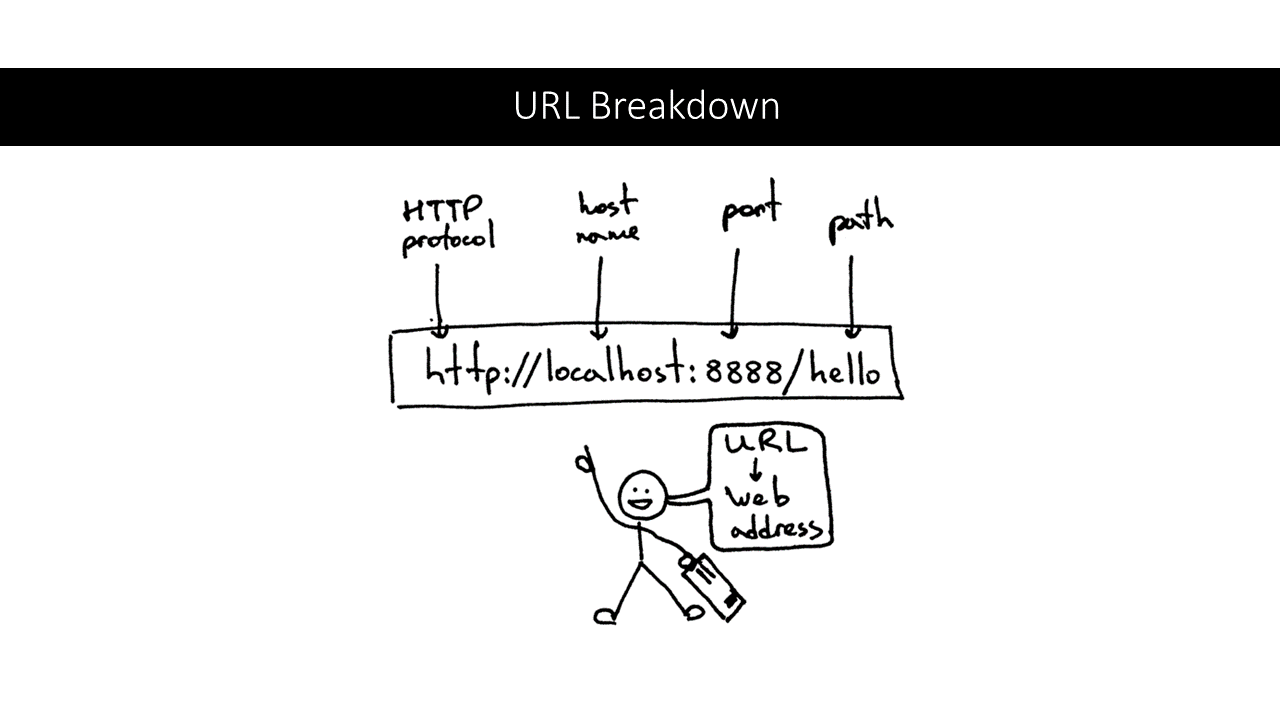 URL Breakdown
HTTP
protocol
host
name
port
path
http://localhost:8888/hello
URL
↓
web
address